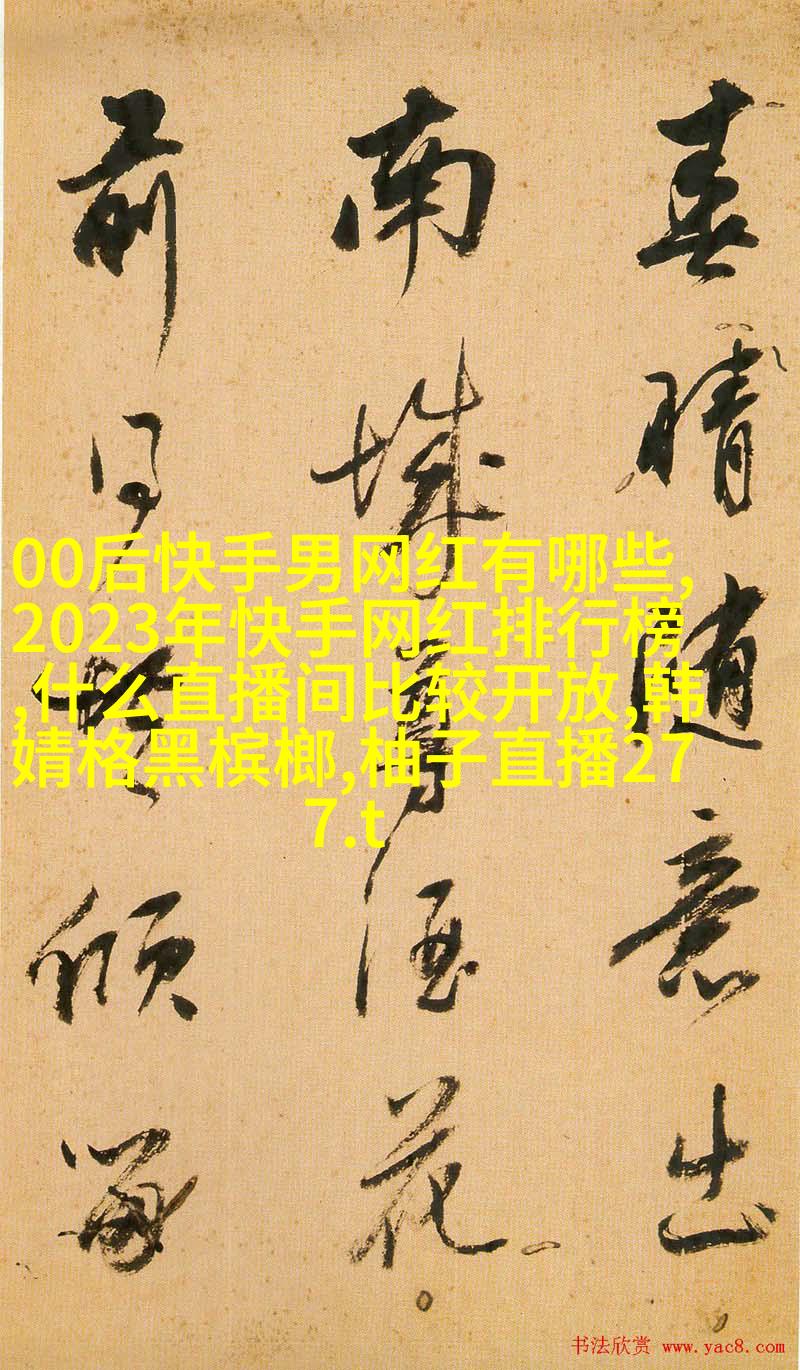 春晴随意出
南城
酒花
前日
倾
00后快手男网红有哪些,
2023年快手网红排行榜
,什么直播间比较开放,韩
婧格黑槟榔,柚子直播27
7.t
书法欣赏 www.yac8.com